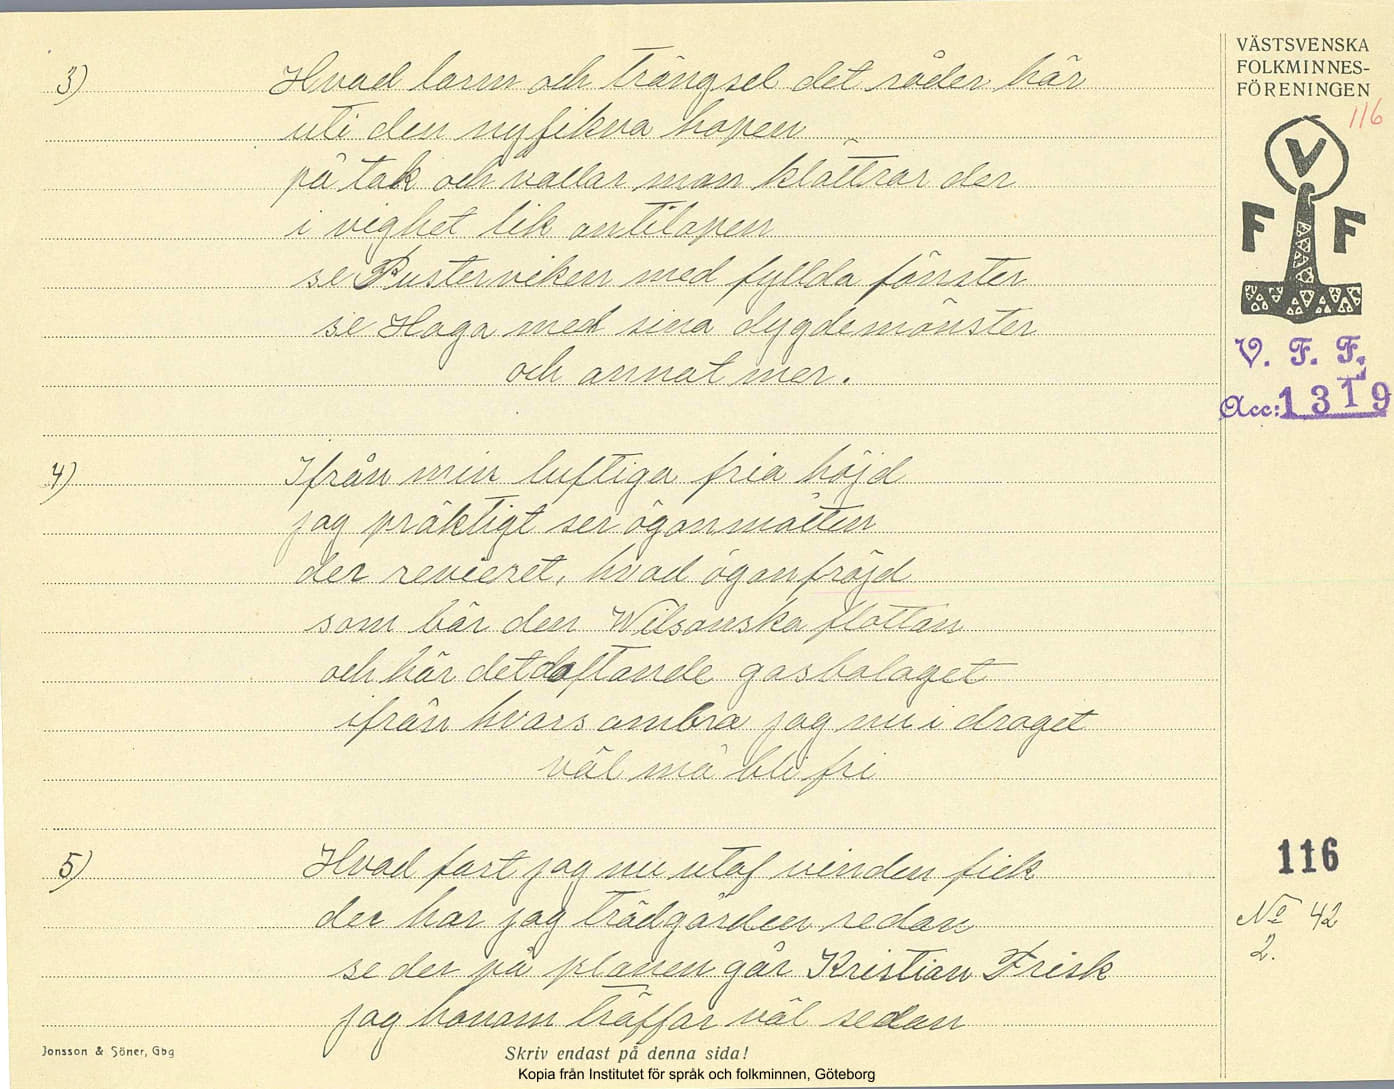 VÄSTSVENSKA
FOLKMINNES-
FÖRENINGEN
116
V
F F
V. F. F.
Acc: 1319
3) Hvad larm och trängsel det råder här
uti den nyfikna hopen
på tak och vallar man klättrar der
i vighet lik antilopen
se Pusterviken med fyllda fönster
se Haga med sina dygdemönster
och annat mer.
4) Ifrån min luftiga fria höjd
jag präktigt ser ögonmåtten
der revieret, hvad ögonfröjd
som bär den Wilsonska flottan
och här det doftande gasbolaget
ifrån hvars ambra jag nu i draget
väl må bli fri
5) Hvad fart jag nu utaf vinden fick
der har jag trädgården redan
se der på planen går Kristian Frisk
jag honom träffar väl sedan
116
No 42
2.
Jonsson & Söner, Gbg
Skriv endast på denna sida!
Kopia från Institutet för språk och folkminnen, Göteborg